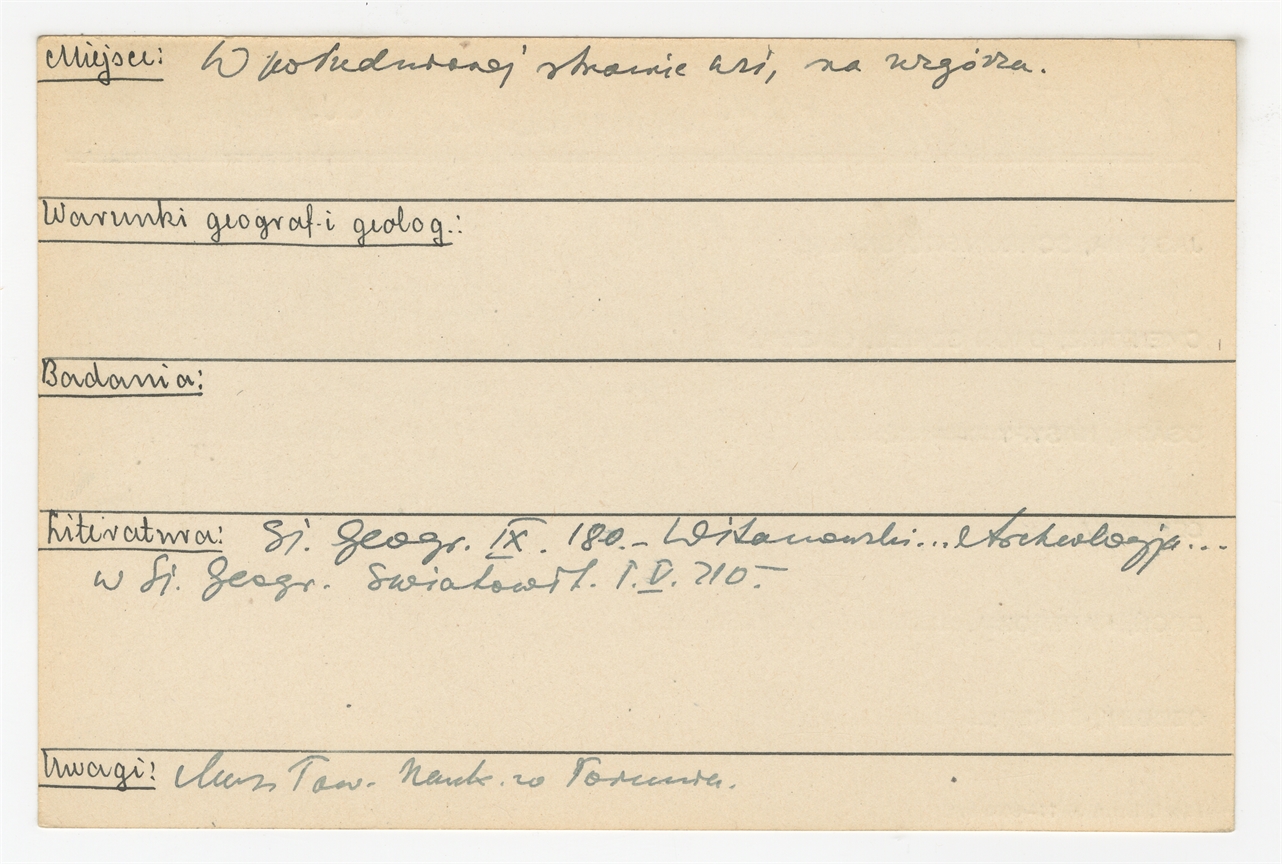 Miejsce: W południowej stronie wsi, na wzgórzu.
Warunki geograf. i geolog.:
Badania:
Literatura: Sł. Geogr. IX. 180. – Witanowski... Archeologja...
w Sł. Geogr. Światowit. T. V. 210. –
Uwagi: Muz. Tow. Nauk. w Toruniu.